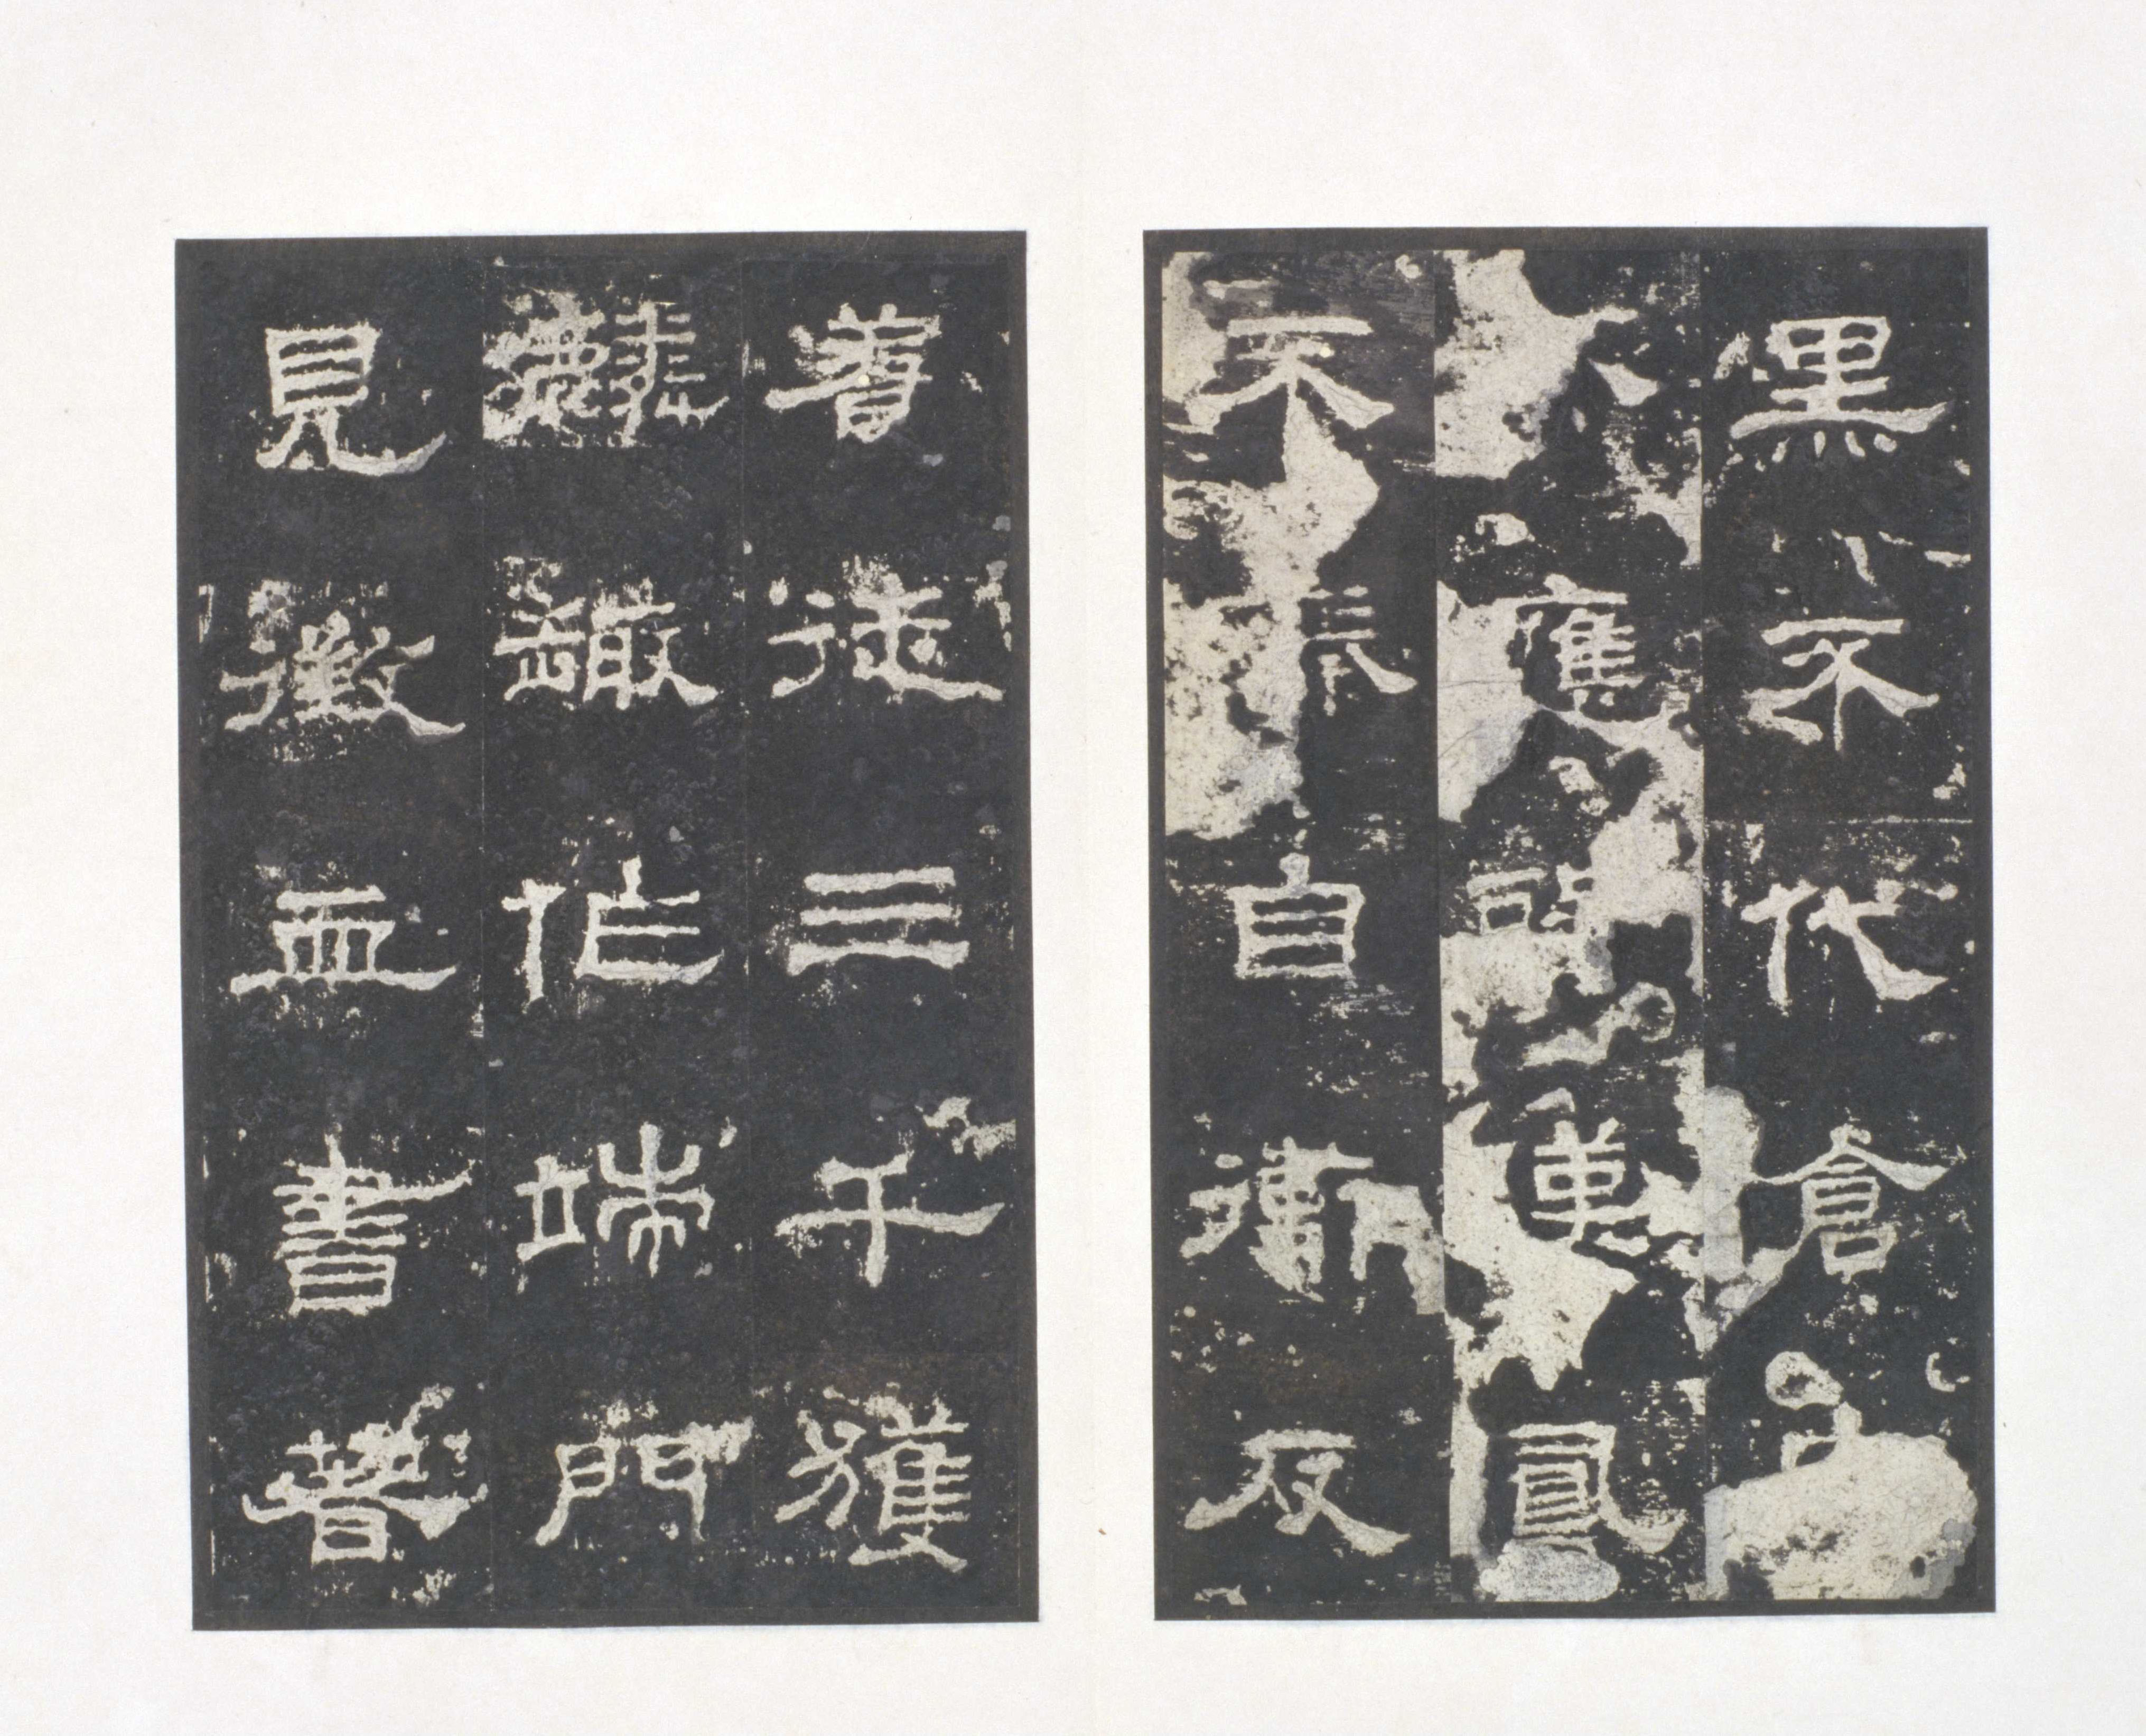 黑不代倉
應歎鳳
不臻自衛反
養徒三千獲
麟趣作端門
見徵血書著